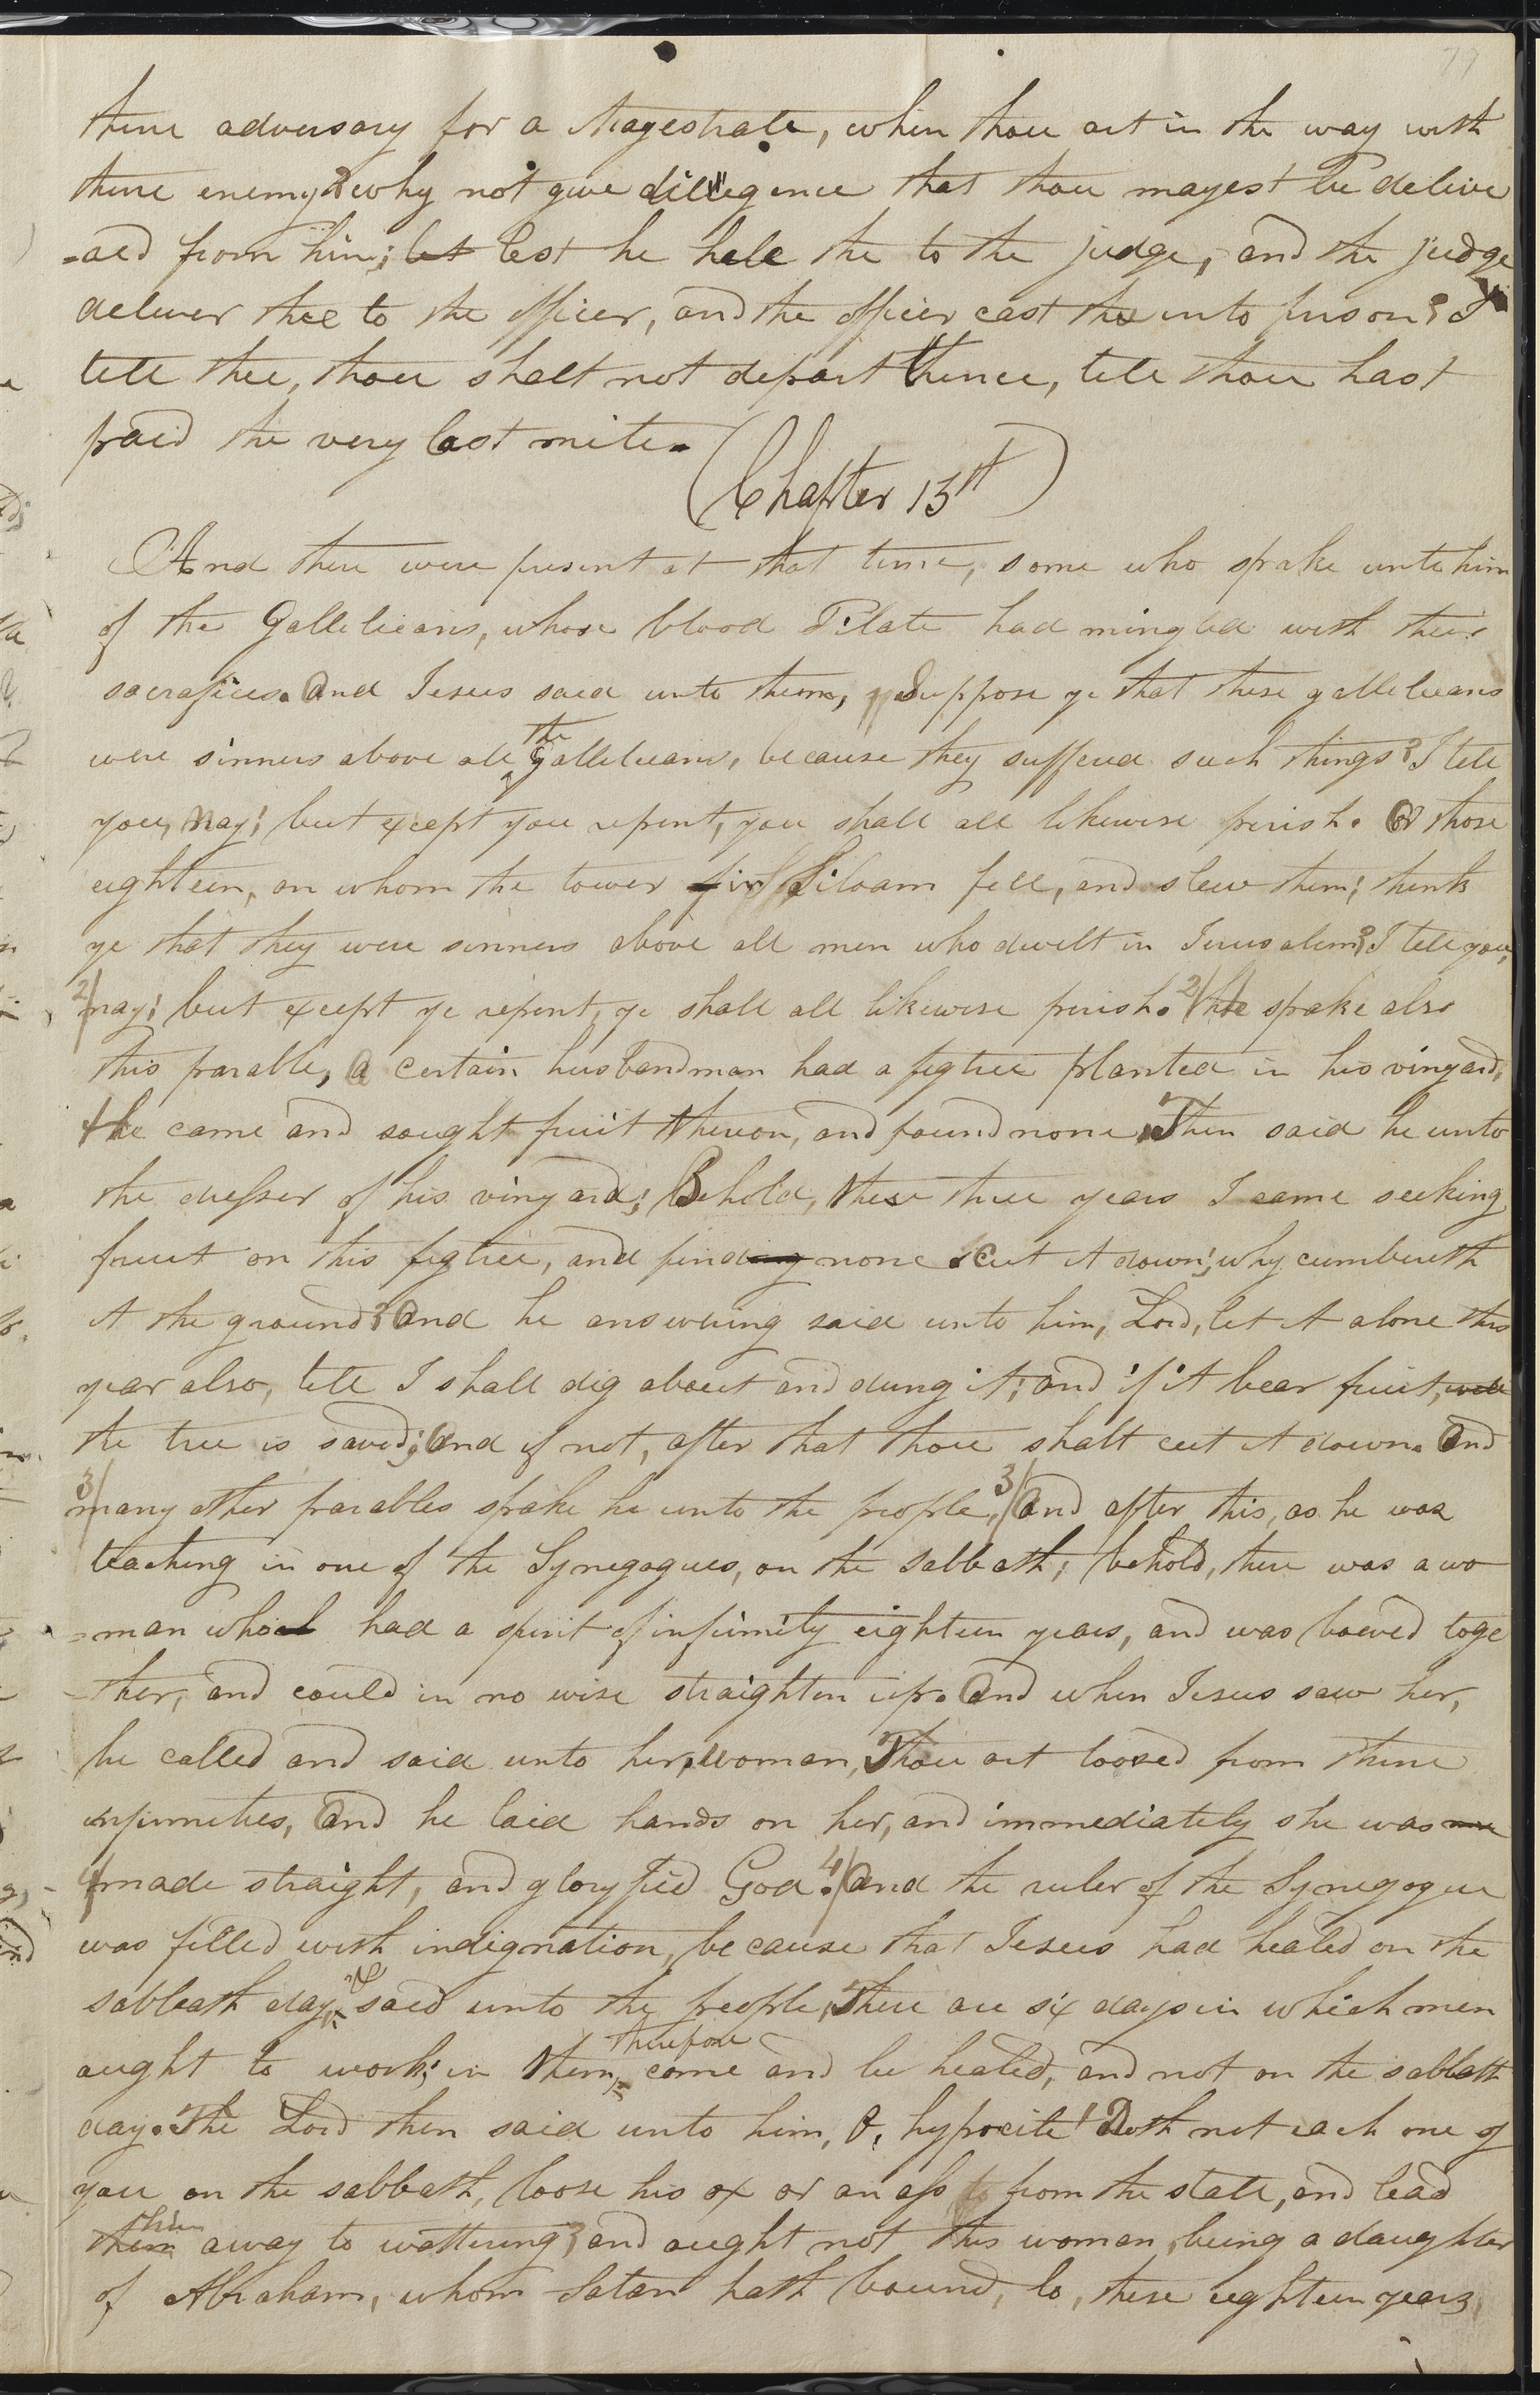 77
thine adversary for a Magestrate, when thou art in the way with
thine enemy? why not give dilligence that thou mayest be delive
-red from him; let lest he hale the to the judge, and the judge
deliver thee to the officer, and the officer cast the into prison? I
tell thee, thou shalt not depart thence, till thou hast
paid the very last mite.
(Chapter 13th)
And there were present at that time, some who spake unto him
of the Gallileeans, whose blood Pilate had mingled with their
sacrafices. And Jesus said unto them, Suppose ye that these galleleeans
were sinners above all the galleleeans, because they suffered such things? I tell
you, Nay; but except you repent, you shall all likewise perish. Or those
eighteen, on whom the tower in Siloam fell, and slew them; think
ye that they were sinners above all men who dwelt in Jerusalem? I tell you,
2/ nay; but except ye repent, ye shall all likewise perish. 2/ he spake also
this parable, A certain husbandman had a figtree planted in his vinyard,
he came and sought fruit thereon, and found none. Then said he unto
the dresser of his vinyard; Behold, these three years I came seeking
fruit on this figtree, and finding none. Cut it down; why cumbereth
it the ground? And he answering said unto him, Lord, let it alone this
year also, till I shall dig about and dung it; and if it bear fruit, well
the tree is saved; And if not, after that thou shalt cut it down. And
3/ many other parables spake he unto the people, 3/ And after this, as he was
teaching in one of the Synegogues, on the Sabbath; behold, there was a wo
-man who had a spirit of infirmity eighteen years, and was bowed toge
-ther, and could in no wise straighten up. And when Jesus saw her,
he called and said unto her, woman, Thou art loosed from thine
infirmeties, And he laid hands on her, and immediately she was
4/ made straight, and gloryfied God. 4/ And the ruler of the Synegogue
was filled with indignation, because that Jesus had healed on the
sabbath day, & said unto the people, There are six days in which men
aught to work; in them, therefore come and be healed, and not on the sabbath
day. The Lord then said unto him, O, hypocite! Doth not each one of
you on the sabbath, loose his ox or an ass from the stall, and lead
them him away to wattering; and aught not this woman, being a daughter
of Abraham, whom Satan hath bound, lo, these eighteen years,